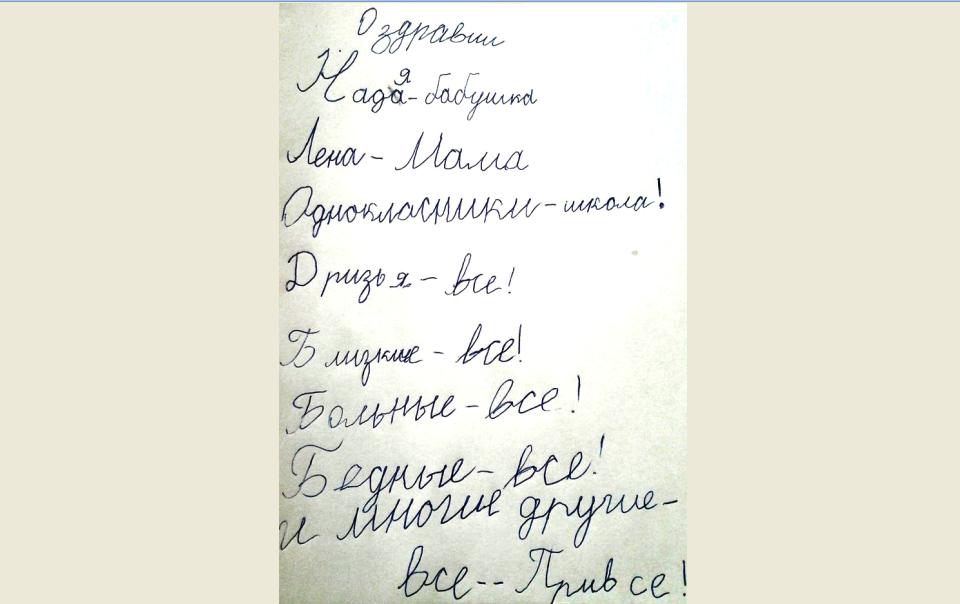 Оздравии
Надя - бабушка
Лена - Мама
Однокласники - школа!
Дризья - все!
Близкие - все!
Больные - все!
Бедные - все!
и многие другие -
все -- Прив се!